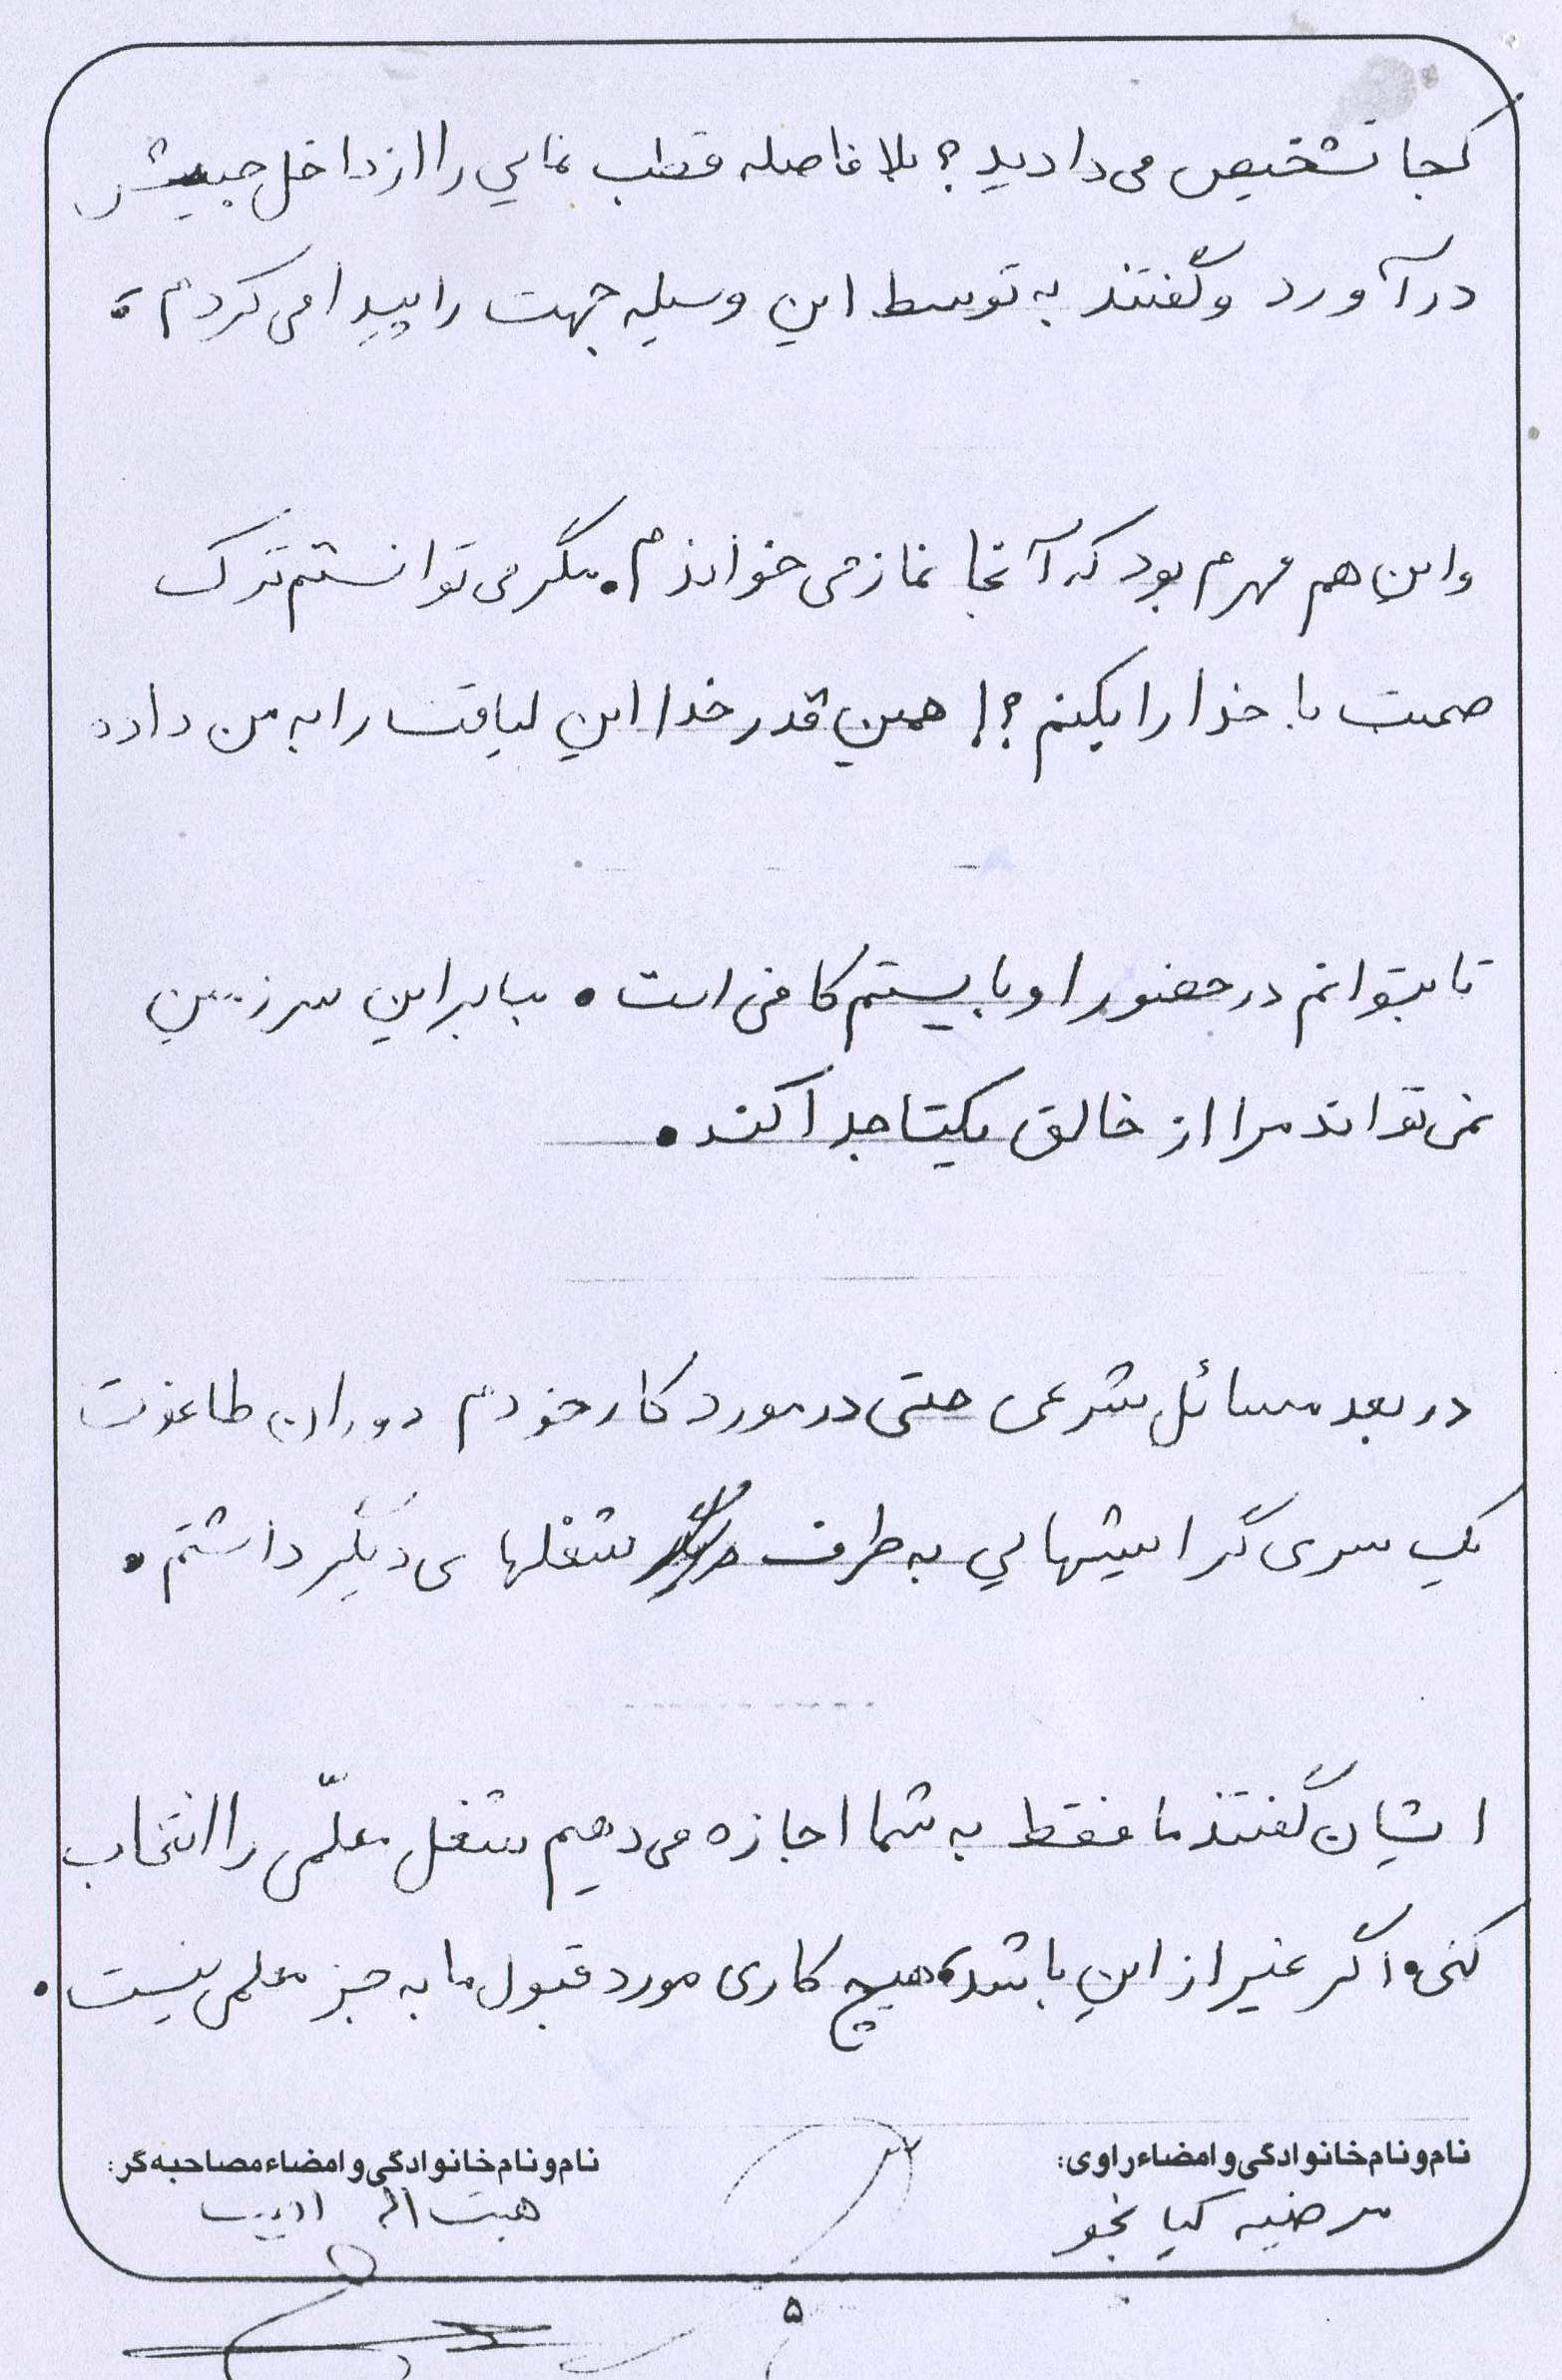 کجا تشخیص می دادید؟ بلا فاصله قطب نمایی را از داخل جیبش
در آورد و گفتند به توسط این وسیله جهت را پیدا می کردم.
و این هم مهرم بود که آنجا نماز می خواندم. مگر می توانستم ترک
صحبت با خدا را بکنم؟! همین قدر خدا این لیاقت را به من داده
تا بتوانم در حضور او بایستم کافی است. بنابراین سرزمین
نمی تواند مرا از خالق یکتا جدا کند.
در بعد مسائل شرعی حتی در مورد کار خودم دوران طاغوت
یک سری گرایشهایی به طرف شغلهای دیگر داشتم.
ایشان گفتند ما فقط به شما اجازه می دهیم شغل معلّمی را انتخاب
کنی. اگر غیر از این باشد، هیچ کاری مورد قبول ما به جز معلمی نیست.
نام و نام خانوادگی و امضاء راوی:
مرضیه کیا نجو
نام و نام خانوادگی و امضاء مصاحبه گر:
هبت اله ادیب
۵